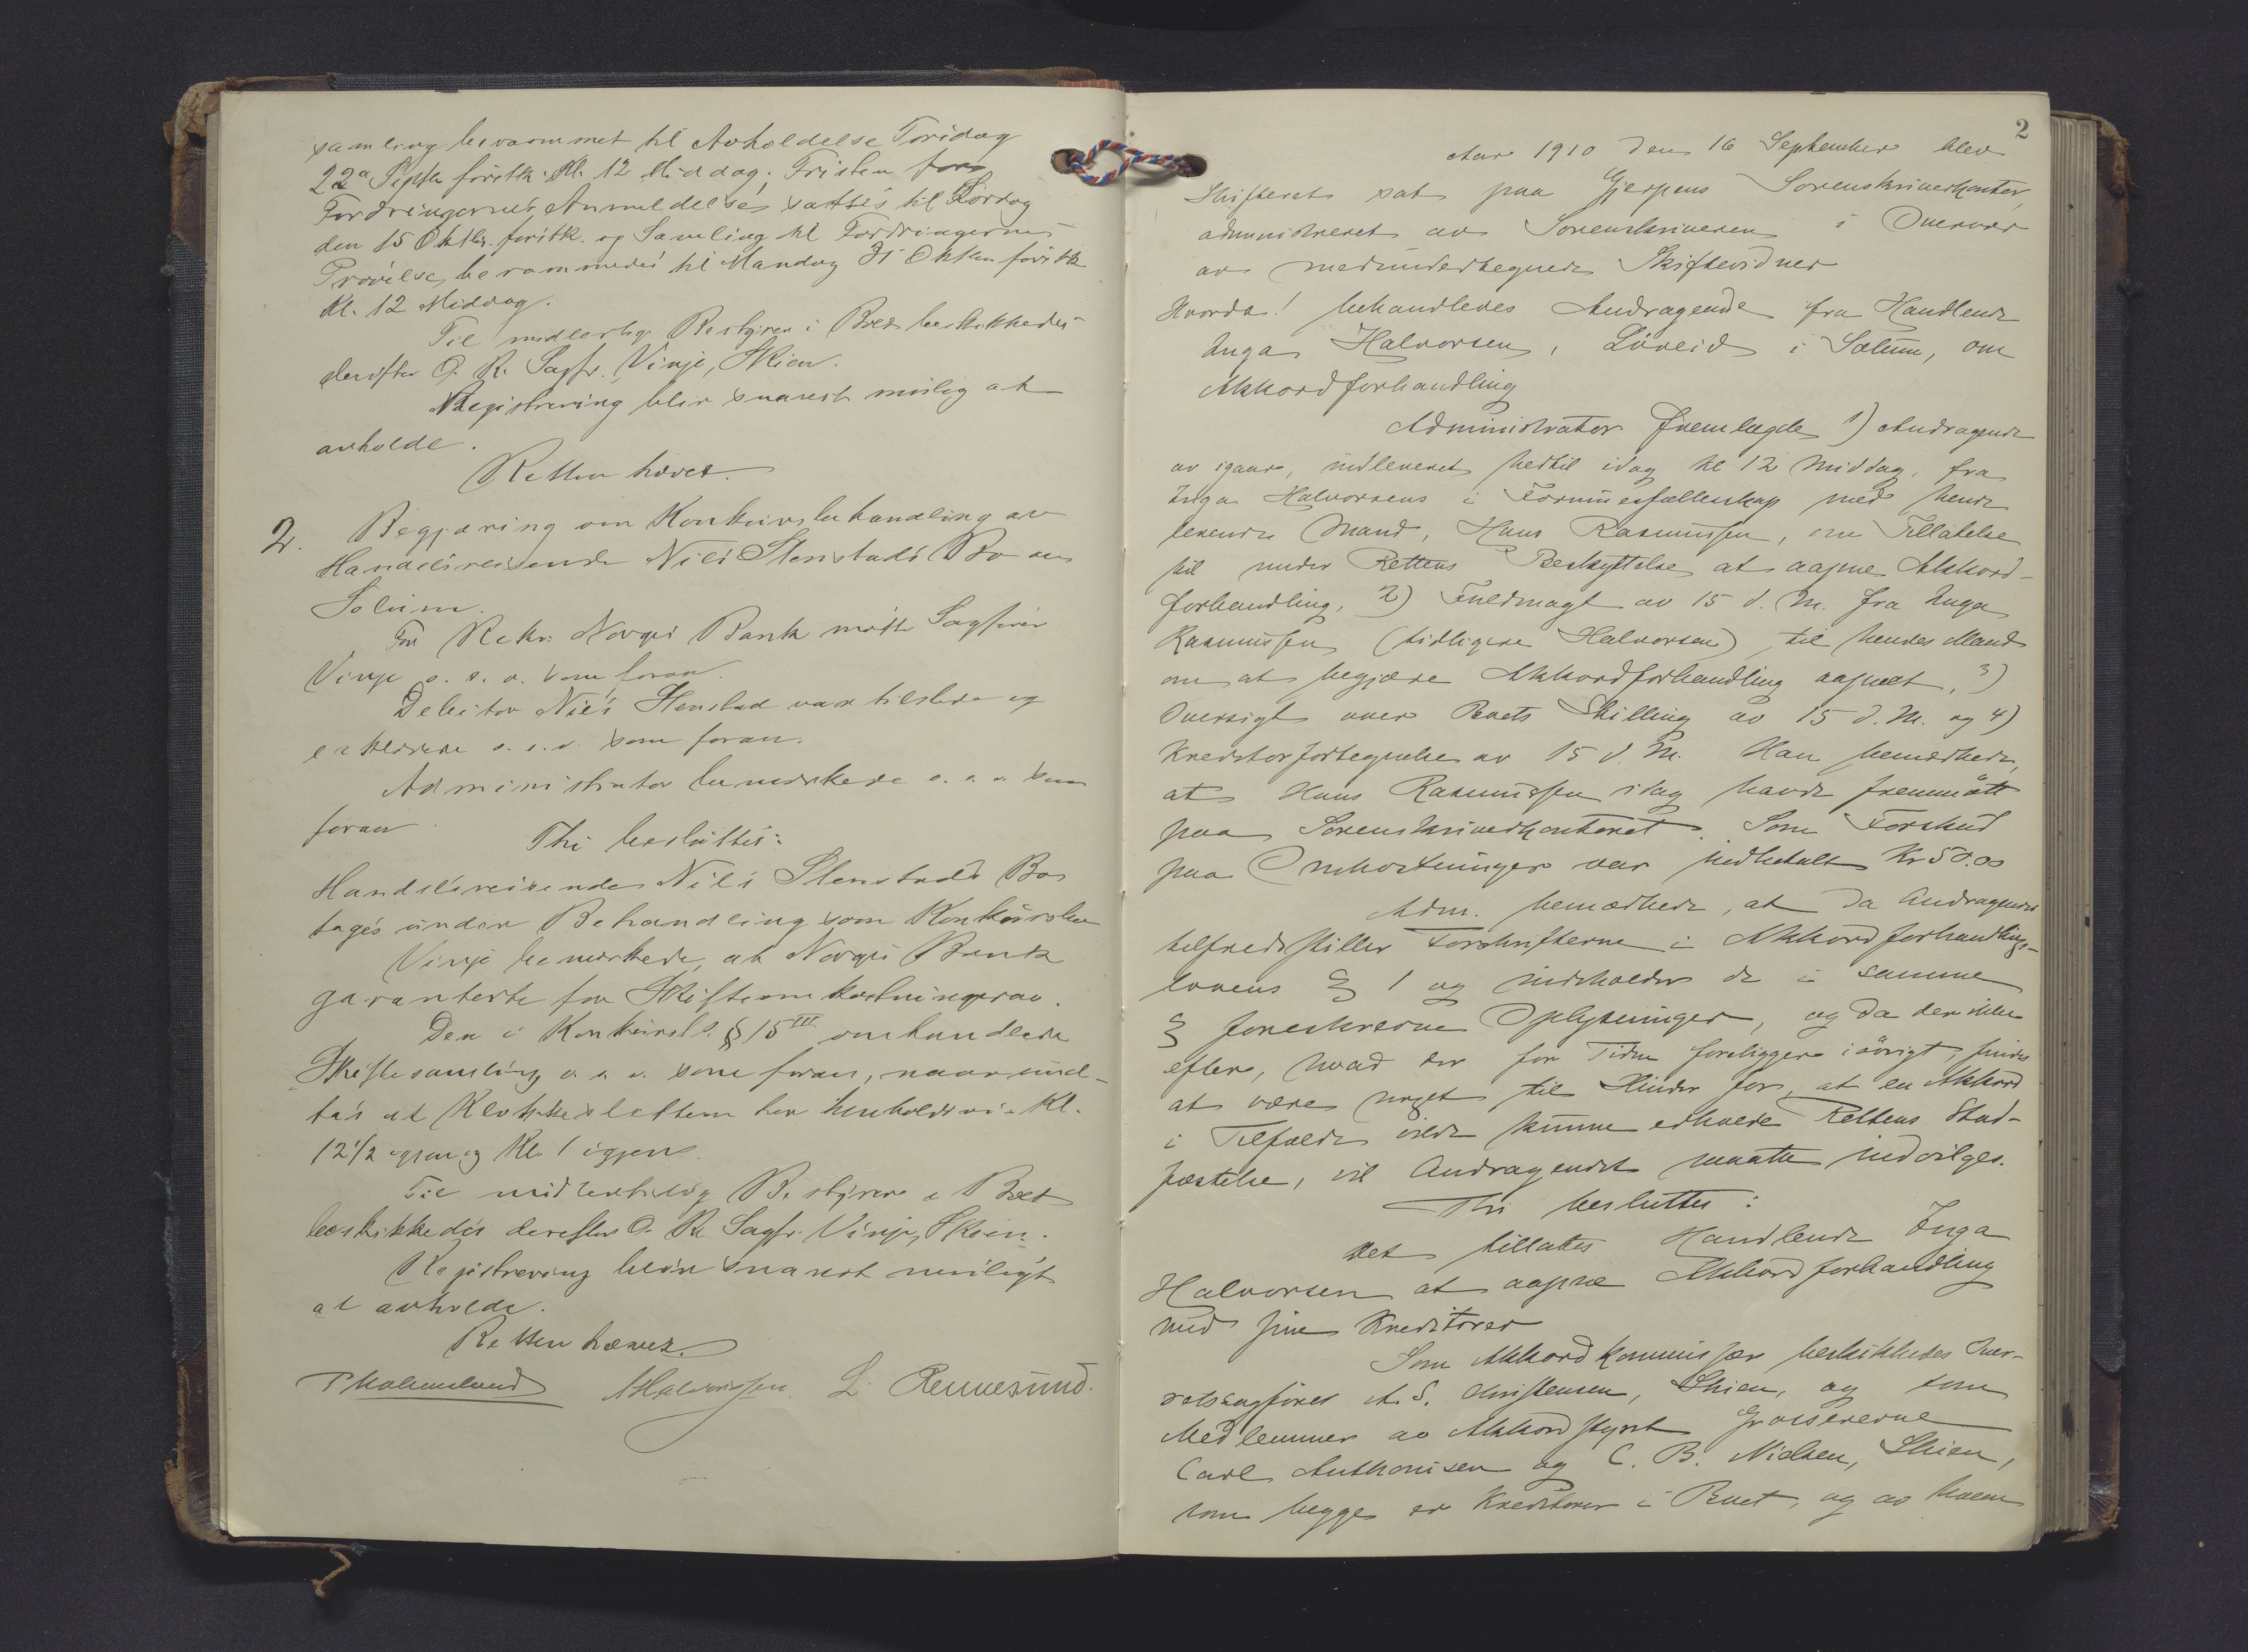 samling berammet til Avholdelse Torsdag
22d Septbr førstk. Kl. 12 Middag. Fristen for
Fordringernes Anmeldelse sattes til Lørdag
den 15 Oktbr. førstk. og Samling til Fordringernes
Prøvelse berammedes til Mandag 31 Oktbr førstk
Kl. 12 Middag.
Til midlertidig Bestyrer i Boet beskikkedes
derefter O. R. Sagfr. Vinje, Skien.
Registrering blir snarest mulig at
avholde.
Retten hævet.
2. Begjæring om Konkursbehandling av
Handelsreisende Nils Stenstads Bo av
Solum.
For Rekv. Norges Bank mötte Sagfører
Vinje o. s. v. som foran.
Debitor Nils Stenstad var tilstede og
erklærede o. s. v. som foran.
Administrator bemerkede o. s. v. som
foran.
Thi besluttes:
Handelsreisende Nils Stenstads Bo
tages under Behandling som Konkursbo
Vinje bemerkede, at Norges Bank
garanterte for Skifteomkostningerne.
Den i Konkursl. § 15 III omhandlede
Skiftesamling o. s. v. som foran, naar und-
tas at Klokkesletten her henholdsvis Kl.
12½ og Kl. 1 igjen.
Til midlertidig Bestyrer i Boet
beskikkedes derefter O. R. Sagfr. Vinje, Skien.
Registrering blir snarest muligt
at avholde.
Retten hævet.
Halvorsen. L. Rennesund.
2
Aar 1910 den 16 September blev
Skifteret sat paa Gjerpens Sorenskriverkontor,
administreret av Sorenskriveren i Overvær
av medundertegnede Skiftevidner
Hvorda! behandledes Andragende fra Handlende
Inga Halvorsen, Löveid i Solum, om
Akkordforhandling
Administrator fremlagde 1) Andragende
av igaar, indleveret hertil idag kl 12 Middag, fra
Inga Halvorsens i Formuesfællesskap med hende
levende Mand, Hans Rasmussen, om Tilladelse
til under Rettens Beskyttelse at aapne Akkord-
forhandling, 2) Fuldmagt av 15 d. M. fra Inga
Rasmussen (tidligere Halvorsen) til hendes Mand
om at begjære Akkordforhandling aapnet, 3)
Oversigt over Boets Stilling av 15 d. M. og 4)
Kreditorfortegnelse av 15 d. M. Han bemærkede,
at Hans Rasmussen idag havde fremmött
paa Sorenskriverkontoret. Som Forskud
paa Omkostninger var indbetalt Kr 50.00
Adm. bemærkede, at da Andragendet
tilfredsstiller Forskrifterne i Akkordforhandlings-
lovens § 1 og indeholder de i samme
§ foreskrevne Oplysninger, og da der ikke
efter, hvad der for Tiden foreligger iövrigt, findes
at være noget til Hinder for, at en Akkord
i Tilfælde vilde kunne erholde Rettens Stad-
fæstelse, vil Andragendet maatte indvilges.
Thi besluttes:
Det tillates Handlende Inga
Halvorsen at aapne Akkordforhandling
med sine Kreditorer
Som Akkordkommissær beskikkedes Over-
retssagförer A. S. Christensen, Skien, og som
Medlemmer av Akkordstyret Grossererne
Carl Anthonisen og C. B. Nielsen, Skien,
som begge er Kreditorer i Boet, og av hvem